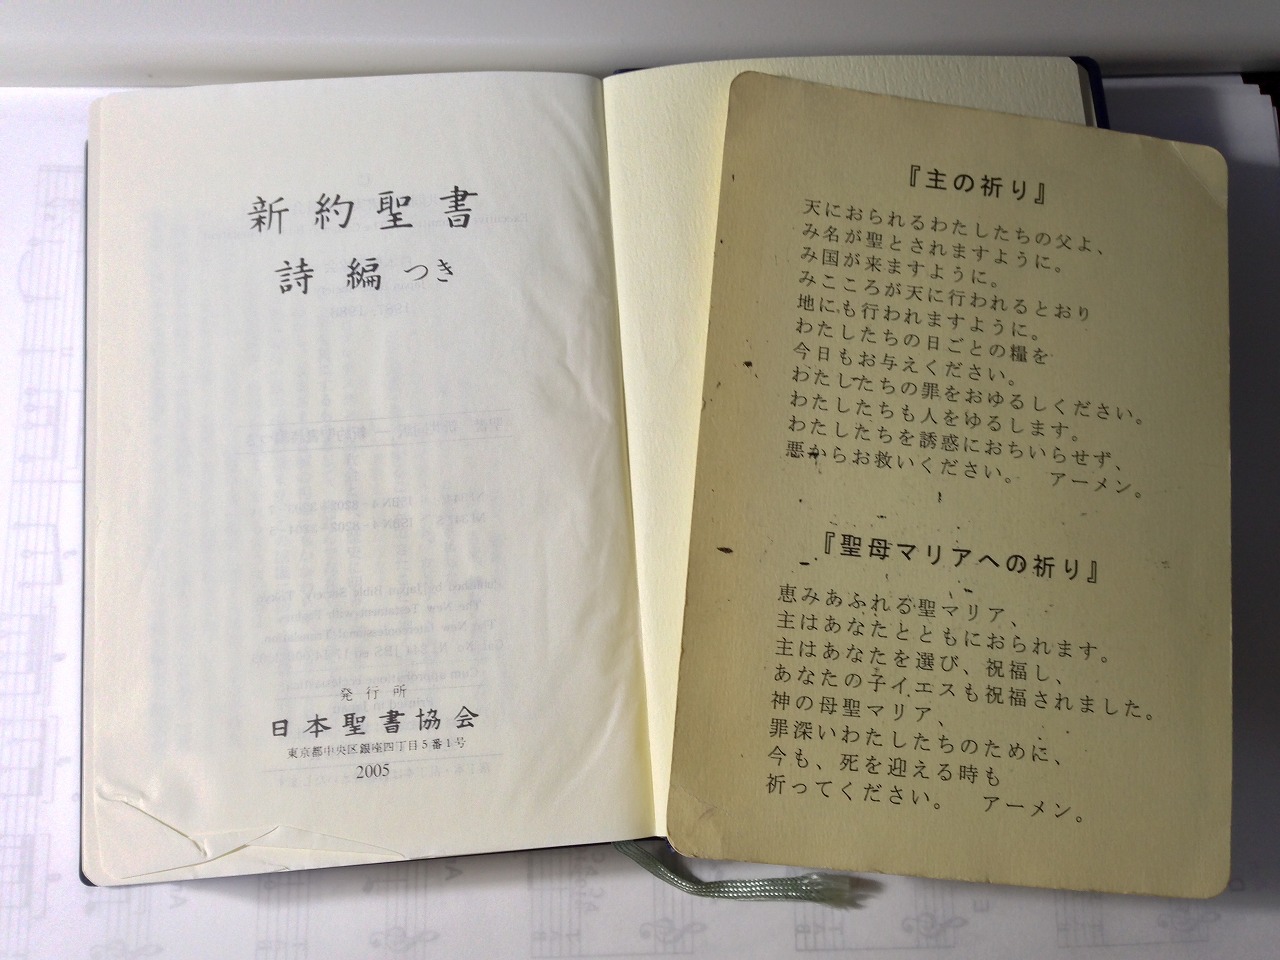 新約聖書
詩編つき
発行所
日本聖書協会
東京都中央区銀座四丁目5番1号
2005
『主の祈り』
天におられるわたしたちの父よ、
み名が聖とされますように。
み国が来ますように。
みこころが天に行われるとおり
地にも行われますように。
わたしたちの日ごとの糧を
今日もお与えください。
わたしたちの罪をおゆるしください。
わたしたちも人をゆるします。
わたしたちを誘惑におちいらせず、
悪からお救いください。　アーメン。
『聖母マリアへの祈り』
恵みあふれる聖マリア、
主はあなたとともにおられます。
主はあなたを選び、祝福し、
あなたの子イエスも祝福されました。
神の母聖マリア、
罪深いわたしたちのために、
今も、死を迎える時も
祈ってください。　アーメン。